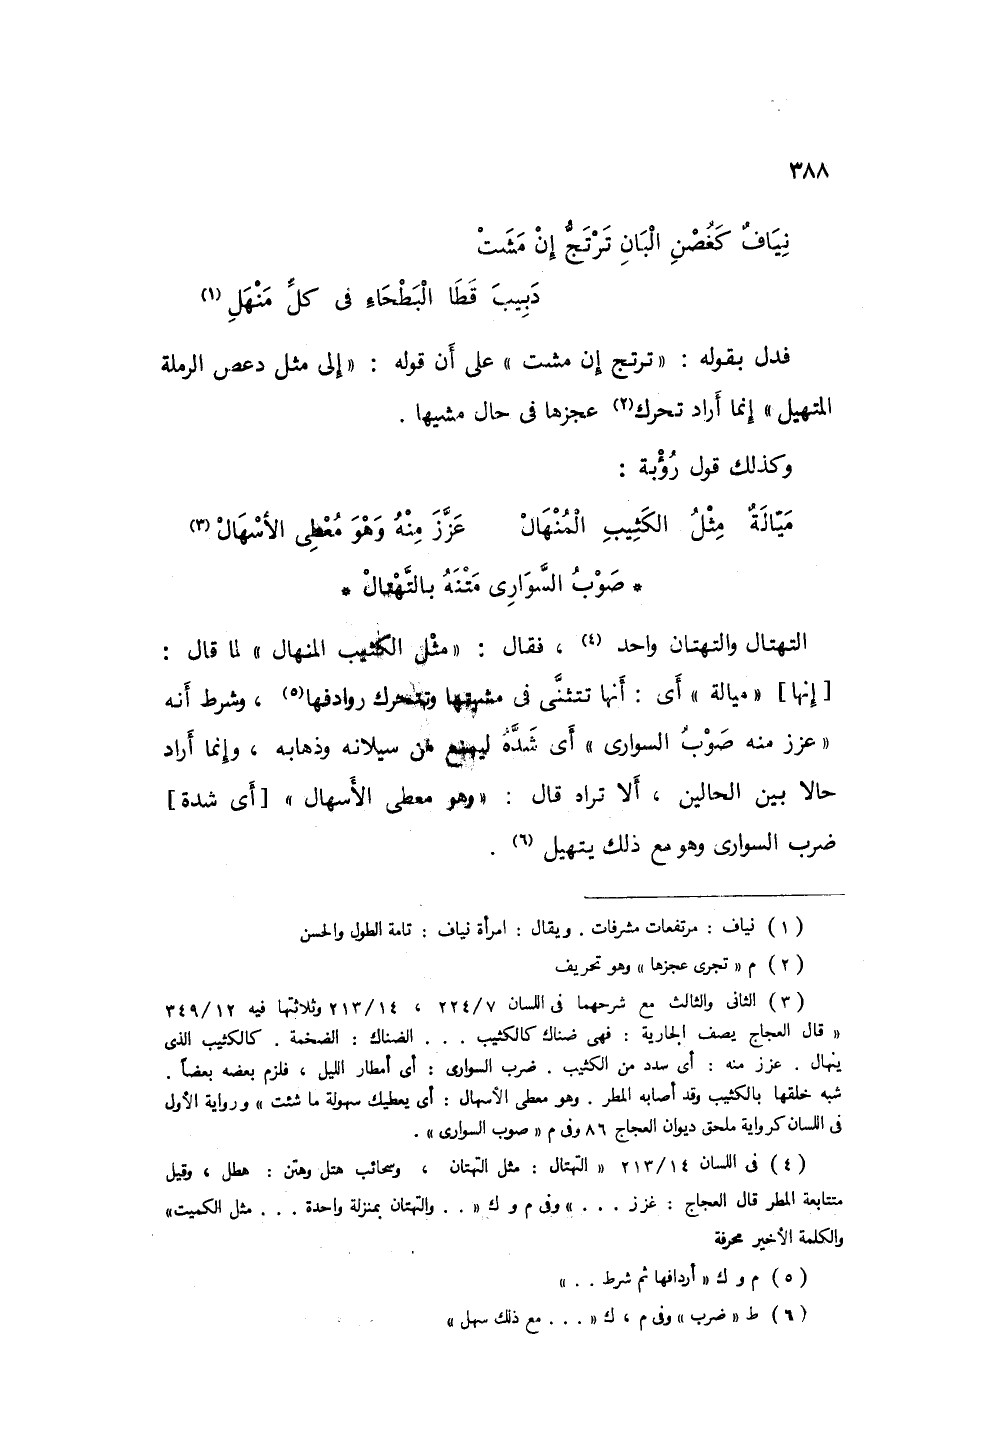 ٣٨٨
نِيَافٌ كَغُصْنِ الْبَانِ تَرْتَجُّ إِنْ مَشَتْ
دَبِيبَ قَطَا الْبَطْحَاءِ فى كلِّ مَنْهَلِ (١)
فدل بقوله : « ترتج إن مشت » على أَن قوله : « إلى مثل دعص الرملة
المتهيل » إنما أَراد تحرك(٢) عجزها فى حال مشيها .
وكذلك قول رُؤْبة :
مَيّالَةٌ مِثْلُ الكَثِيبِ الْمُنْهَالْ عَزَّزَ مِنْهُ وَهْوَ مُعْطِى الأسْهَالْ (٣)
* صَوْبُ السَّوَارِى مَتْنَهُ بالتَّهْتالْ *
التهتال والتهتان واحد (٤) ، فقال : « مثْل الكثيب المنهال » لما قال :
[ إنها ] « ميالة » أَى : أَنها تتثنَّى فى مشيتها وتتحرك روادفها(٥) ، وشرط أنه
« عزز منه صَوْبُ السوارى » أَى شَدَّهُ ليمتنع من سيلانه وذهابه ، وإنما أَراد
حالا بين الحالين ، أَلا تراه قال : « وهو معطى الأَسهال » [ أَى شدة ]
ضرب السوارى وهو مع ذلك يتهيل (٦) .
( ١ ) نياف : مرتفعات مشرفات . ويقال : امرأة نياف : تامة الطول والحسن
( ٢ ) م « تجرى عجزها » وهو تحريف
( ٣ ) الثانى والثالث مع شرحهما فى اللسان ٢٢٤/٧ ، ٢١٣/١٤ وثلاثتها فيه ٣٤٩/١٢
« قال العجاج يصف الجارية : فهى ضناك كالكثيب . . . الضناك : الضخمة . كالكثيب الذى
ينهال . عزز منه : أى سدد من الكثيب . ضرب السوارى : أى أمطار الليل ، فلزم بعضه بعضاً .
شبه خلقها بالكثيب وقد أصابه المطر . وهو معطى الأسهال : أى يعطيك سهولة ما شئت » ورواية الأول
فى اللسان كرواية ملحق ديوان العجاج ٨٦ وفى م « صوب السوارى » .
( ٤ ) فى اللسان ٢١٣/١٤ « التهتال : مثل التهتان ، وسحائب هتل وهتن : هطل ، وقيل
متتابعة المطر قال العجاج : غزز . . . » وفى م و ك « . . والتهتان بمنزلة واحدة . . . مثل الكميت»
والكلمة الأخير محرفة
( ٥ ) م و ك « أردافها ثم شرط . . »
( ٦ ) ط « ضرب » وفى م ، ك « . . . مع ذلك سهل »